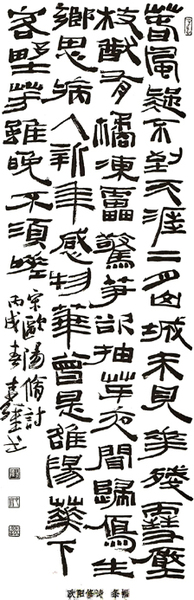 春風疑不到天涯二月山城未見華殘雪壓
枝猷有橘凍靁驚筍欲抽芽夜聞歸鴈生
鄉思病入新年感物華曾是雒陽華下
客野芳雖晚不須嗟
宋歐陽脩詩
丙戌春
欧阳修诗 条幅